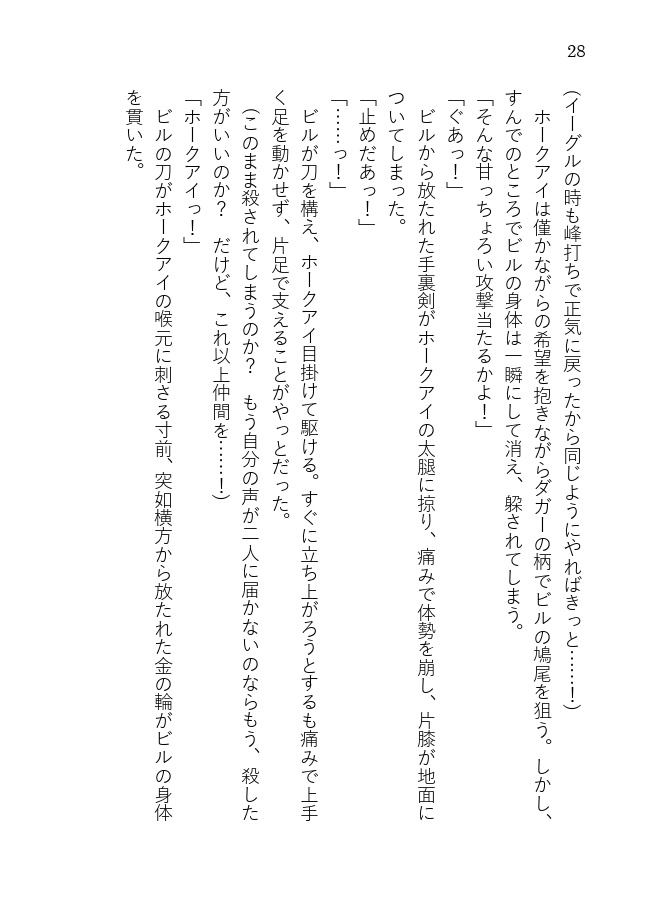 28
(イーグルの時も峰打ちで正気に戻ったから同じようにやればきっと……！)
　ホークアイは僅かながらの希望を抱きながらダガーの柄でビルの鳩尾を狙う。しかし、
すんでのところでビルの身体は一瞬にして消え、躱されてしまう。
「そんな甘っちょろい攻撃当たるかよ！」
「ぐあっ！」
　ビルから放たれた手裏剣がホークアイの太腿に掠り、痛みで体勢を崩し、片膝が地面に
ついてしまった。
「止めだあっ！」
「……っ！」
　ビルが刀を構え、ホークアイ目掛けて駆ける。すぐに立ち上がろうとするも痛みで上手
く足を動かせず、片足で支えることがやっとだった。
(このまま殺されてしまうのか？　もう自分の声が二人に届かないのならもう、殺した
方がいいのか？　だけど、これ以上仲間を……！)
「ホークアイっ！」
　ビルの刀がホークアイの喉元に刺さる寸前、突如横方から放たれた金の輪がビルの身体
を貫いた。